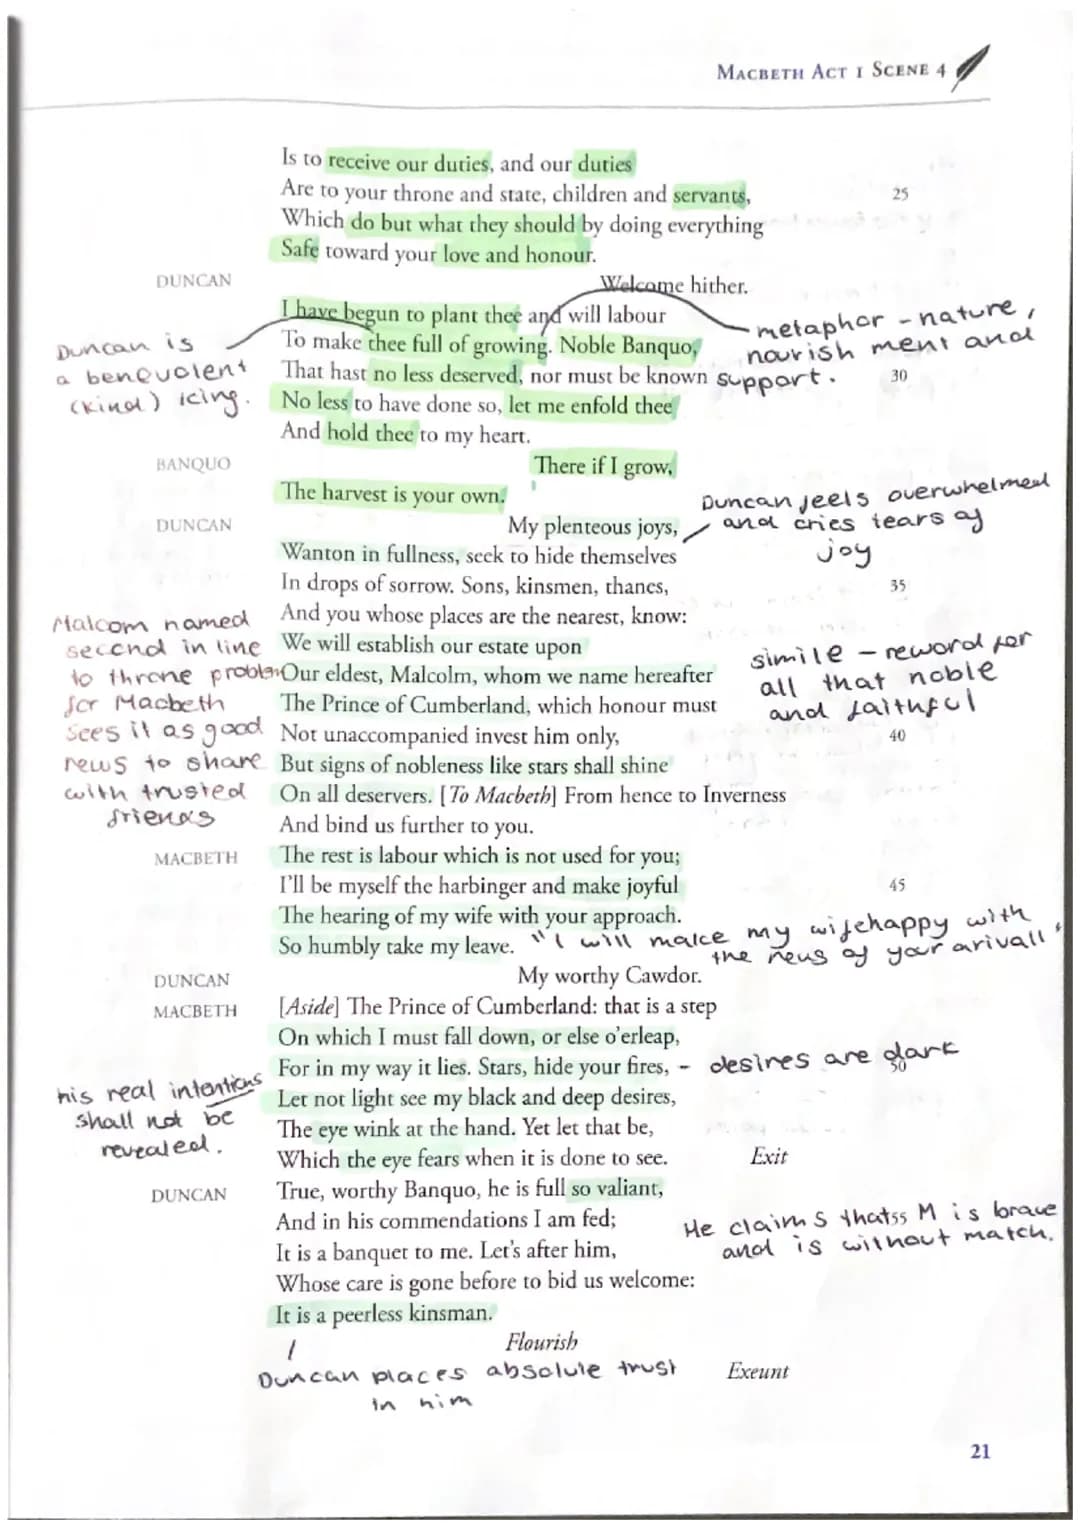 MACBETH ACT I SCENE 4
Is to receive our duties, and our duties
Are to your throne and state, children and servants, 25
Which do but what they should by doing everything
Safe toward your love and honour.
DUNCAN Welcome hither.
I have begun to plant thee and will labour
To make thee full of growing. Noble Banquo,
That hast no less deserved, nor must be known 30
No less to have done so, let me enfold thee
And hold thee to my heart.
Duncan is
a benevolent
(kind) icing.
metaphor - nature,
nourish ment and
support.
BANQUO There if I grow,
The harvest is your own.
DUNCAN My plenteous joys,
Wanton in fullness, seek to hide themselves
In drops of sorrow. Sons, kinsmen, thanes, 35
And you whose places are the nearest, know:
We will establish our estate upon
Our eldest, Malcolm, whom we name hereafter
The Prince of Cumberland, which honour must
Not unaccompanied invest him only, 40
But signs of nobleness like stars shall shine
On all deservers. [To Macbeth] From hence to Inverness
And bind us further to you.
Duncan feels overwhelmed
and cries tears of
joy
Malcom named
second in line
to throne problem
for Macbeth
sees it as good
news to share
with trusted
friends
simile - reword for
all that noble
and faithful
MACBETH The rest is labour which is not used for you;
I'll be myself the harbinger and make joyful 45
The hearing of my wife with your approach.
So humbly take my leave.
"I will make my wifehappy with
the news of your arivall"
DUNCAN My worthy Cawdor.
MACBETH [Aside] The Prince of Cumberland: that is a step
On which I must fall down, or else o'erleap,
For in my way it lies. Stars, hide your fires, 50
Let not light see my black and deep desires,
The eye wink at the hand. Yet let that be,
Which the eye fears when it is done to see. Exit
- desires are dark
his real intentions
shall not be
revealed.
DUNCAN True, worthy Banquo, he is full so valiant,
And in his commendations I am fed; 55
It is a banquet to me. Let's after him,
Whose care is gone before to bid us welcome:
It is a peerless kinsman.
He claims that M is brave
and is without match.
Flourish
Exeunt
Duncan places absolute trust
in him
21